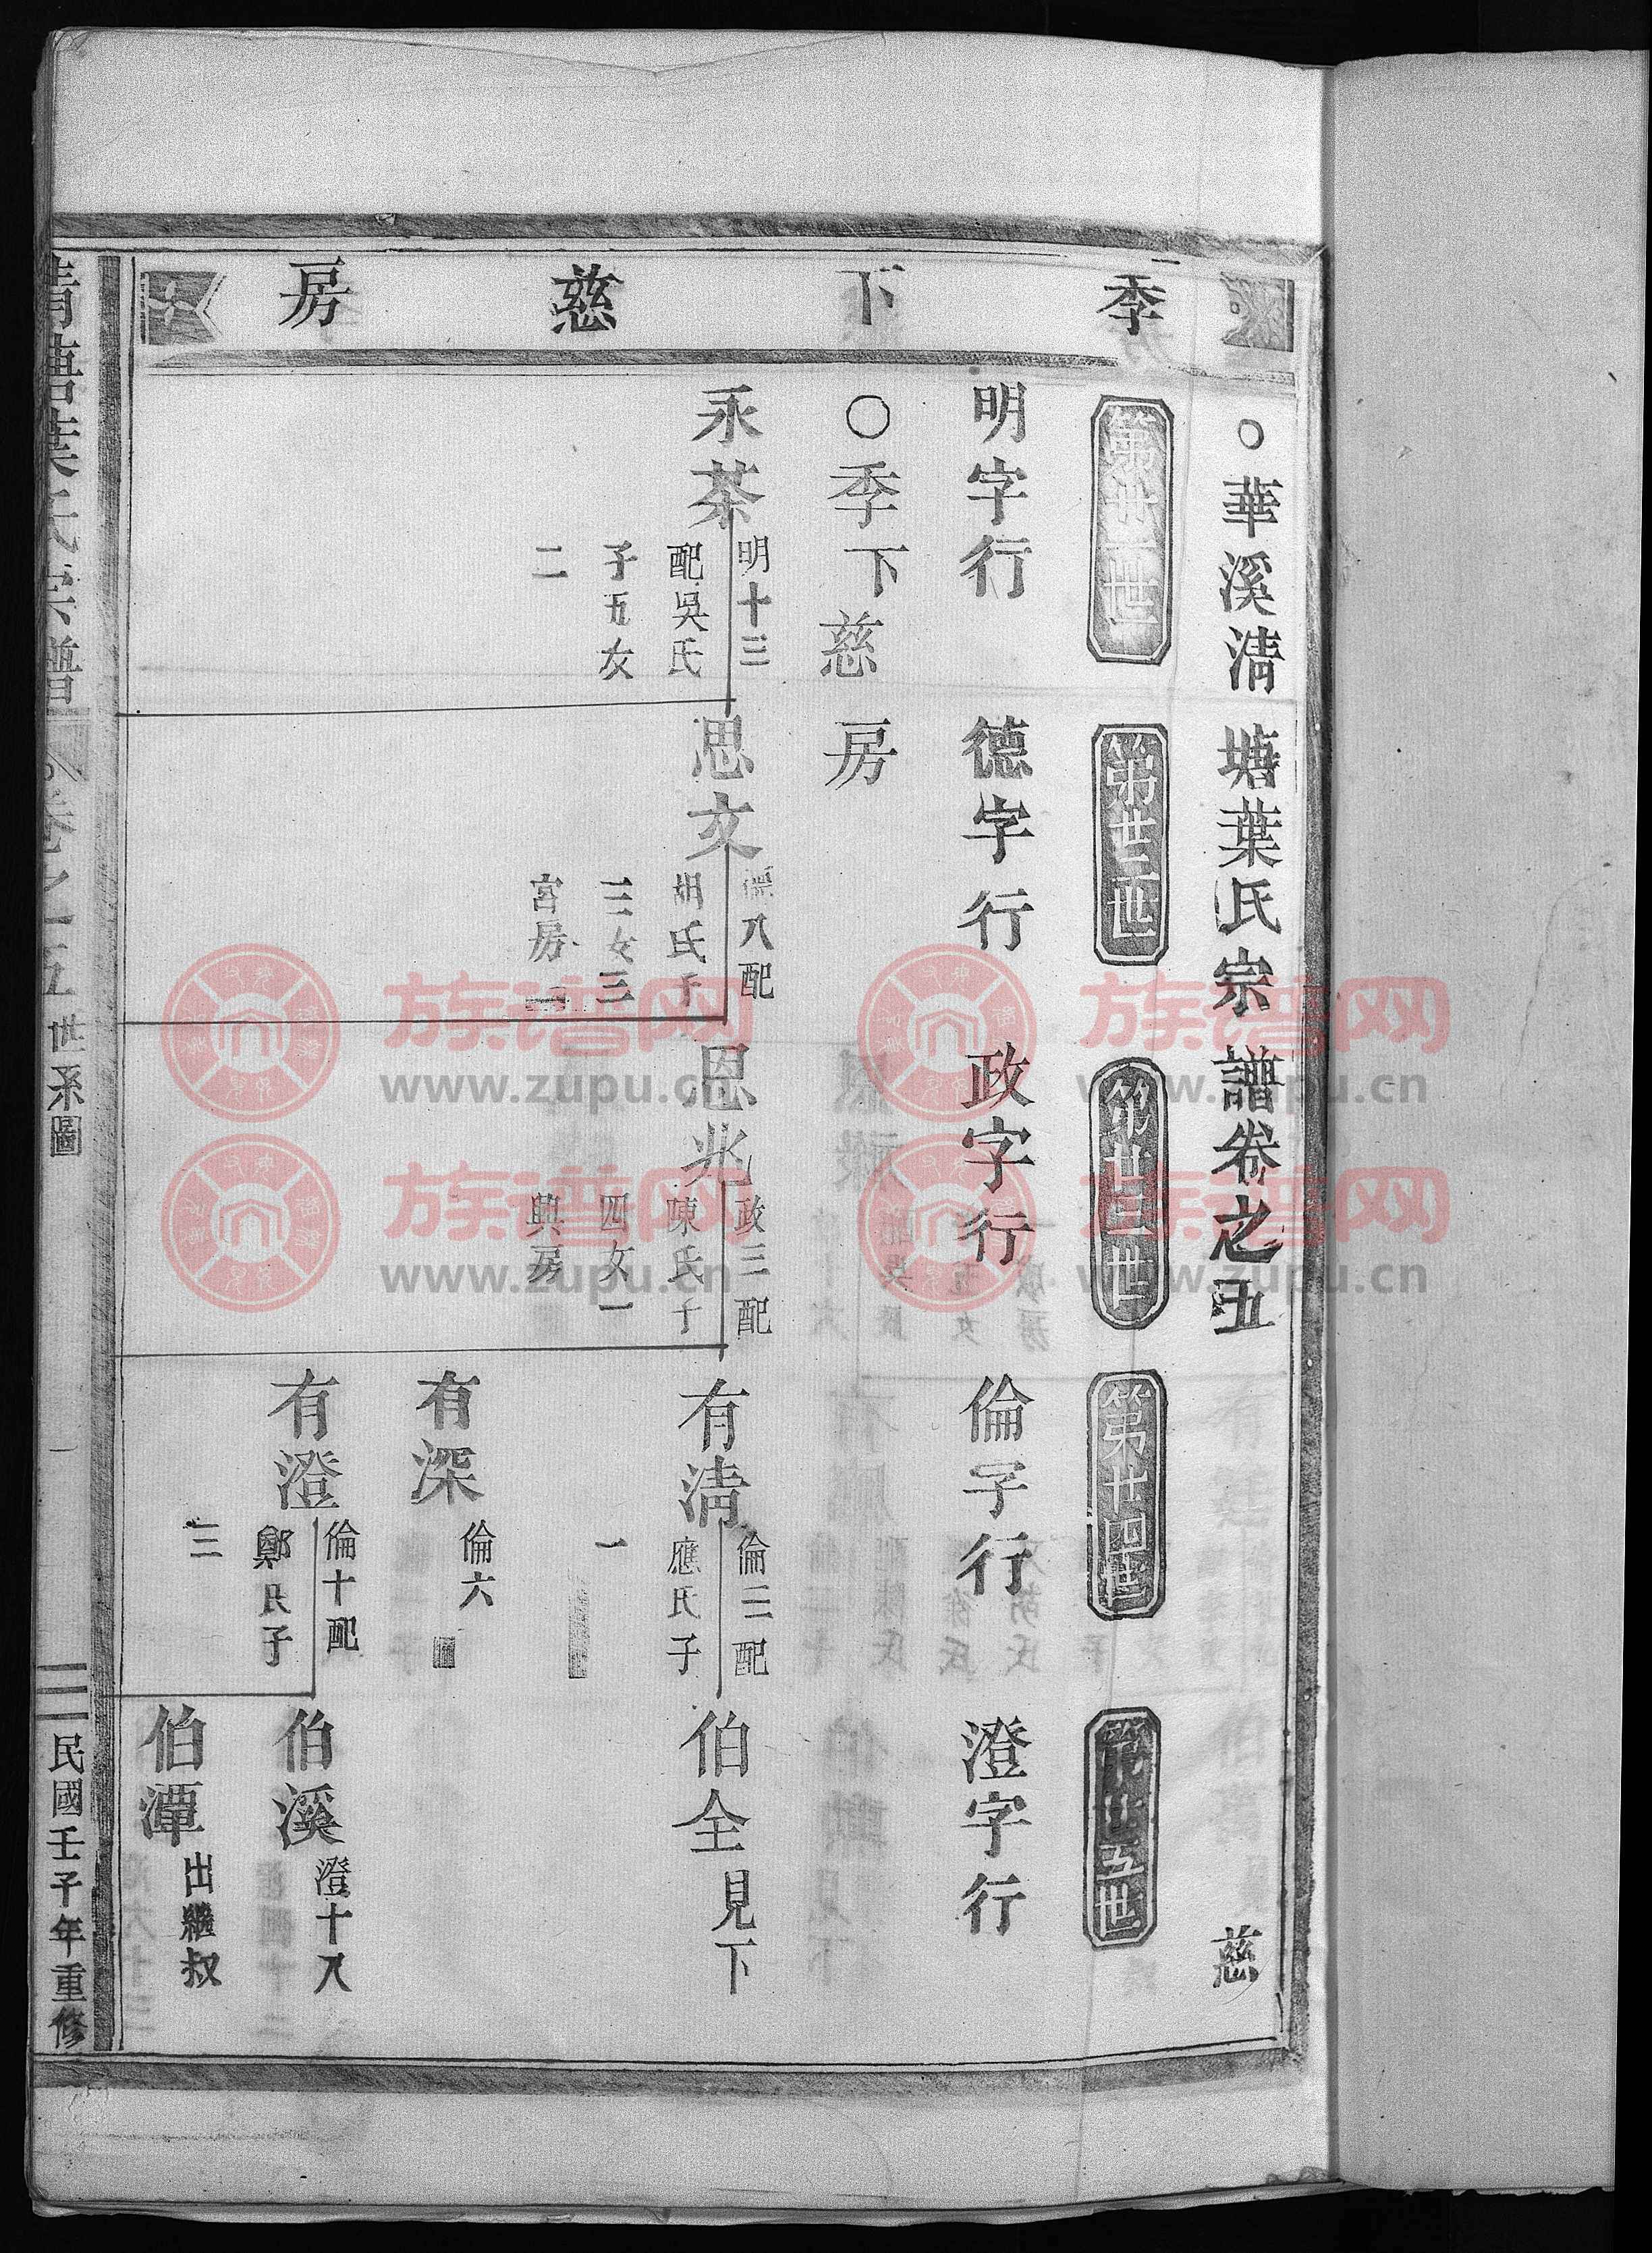 季下慈房
○華溪清塘葉氏宗譜卷之五
慈
第廿一世
第廿二世
第廿三世
第廿四世
第廿五世
明字行
德字行
政字行
倫字行
澄字行
○季下慈房
永茶
明十三
配吳氏
子五女
二
思文
德八配
胡氏子
三女三
宮房
恩兆
政三配
陳氏子
四女一
興房
有清
倫三配
應氏子
一
伯全
見下
有深
倫六
有澄
倫十配
鄭氏子
三
伯溪
澄十八
伯潭
出繼叔
清塘葉氏宗譜
卷之五
世系圖
一
民國壬子年重修
族谱网
www.zupu.cn
族谱网
www.zupu.cn
族谱网
www.zupu.cn
族谱网
www.zupu.cn